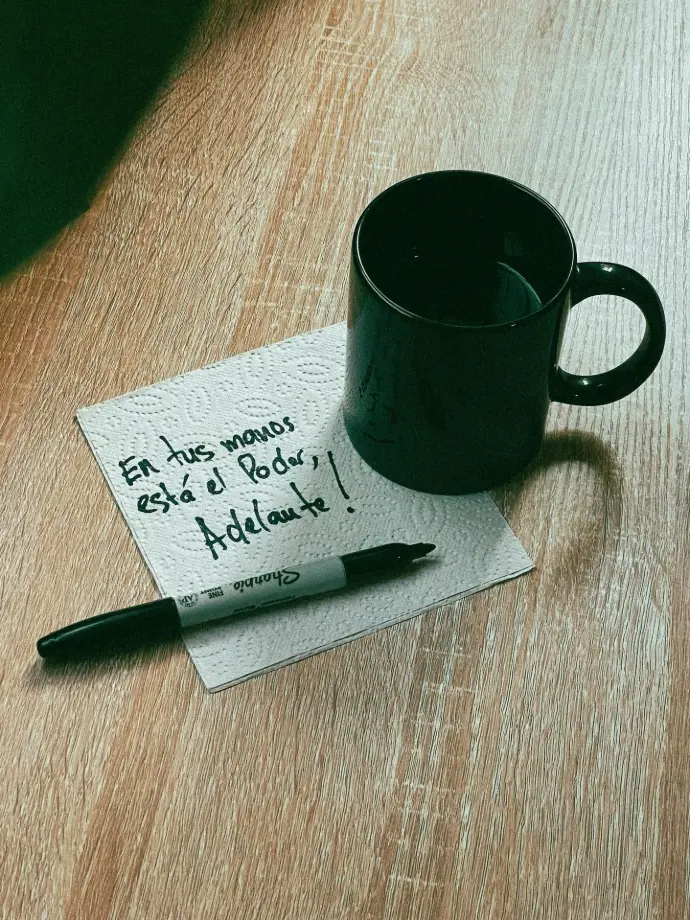 En tus manos
está el Poder,
Adelante!
Sharpie
FINE
POINT